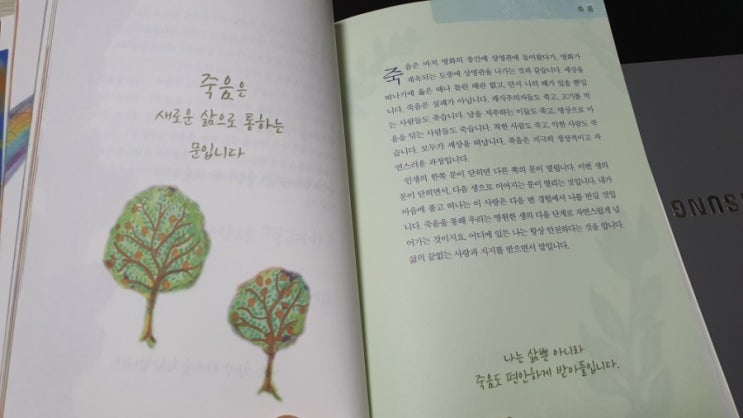 죽음은
새로운 삶으로 통하는
문입니다
죽음
죽음은 마치 영화의 중간에 상영관에 들어왔다가, 영화가
계속되는 도중에 상영관을 나가는 것과 같습니다. 세상을
떠나기에 옳은 때나 틀린 때란 없고, 단지 나의 때가 있을 뿐입
니다. 죽음은 실패가 아닙니다. 채식주의자들도 죽고, 고기를 먹
는 사람들도 죽습니다. 남을 저주하는 이들도 죽고, 명상으로 마
음을 닦는 사람들도 죽습니다. 착한 사람도 죽고, 악한 사람도 죽
습니다. 모두가 세상을 떠납니다. 죽음은 지극히 정상적이고 자
연스러운 과정입니다.
인생의 한쪽 문이 닫히면 다른 쪽의 문이 열립니다. 이번 생의
문이 닫히면서, 다음 생으로 이어지는 문이 열리는 것입니다. 내가
마음에 품고 떠나는 이 사랑은 다음 번 경험에서 나를 반길 것입
니다. 죽음을 통해 우리는 영원한 생의 다음 단계로 자연스럽게 넘
어가는 것이지요. 어디에 있든 나는 항상 안전하다는 것을 압니다.
삶의 끝없는 사랑과 지지를 받으면서 말입니다.
나는 삶뿐 아니라
죽음도 편안하게 받아들입니다.